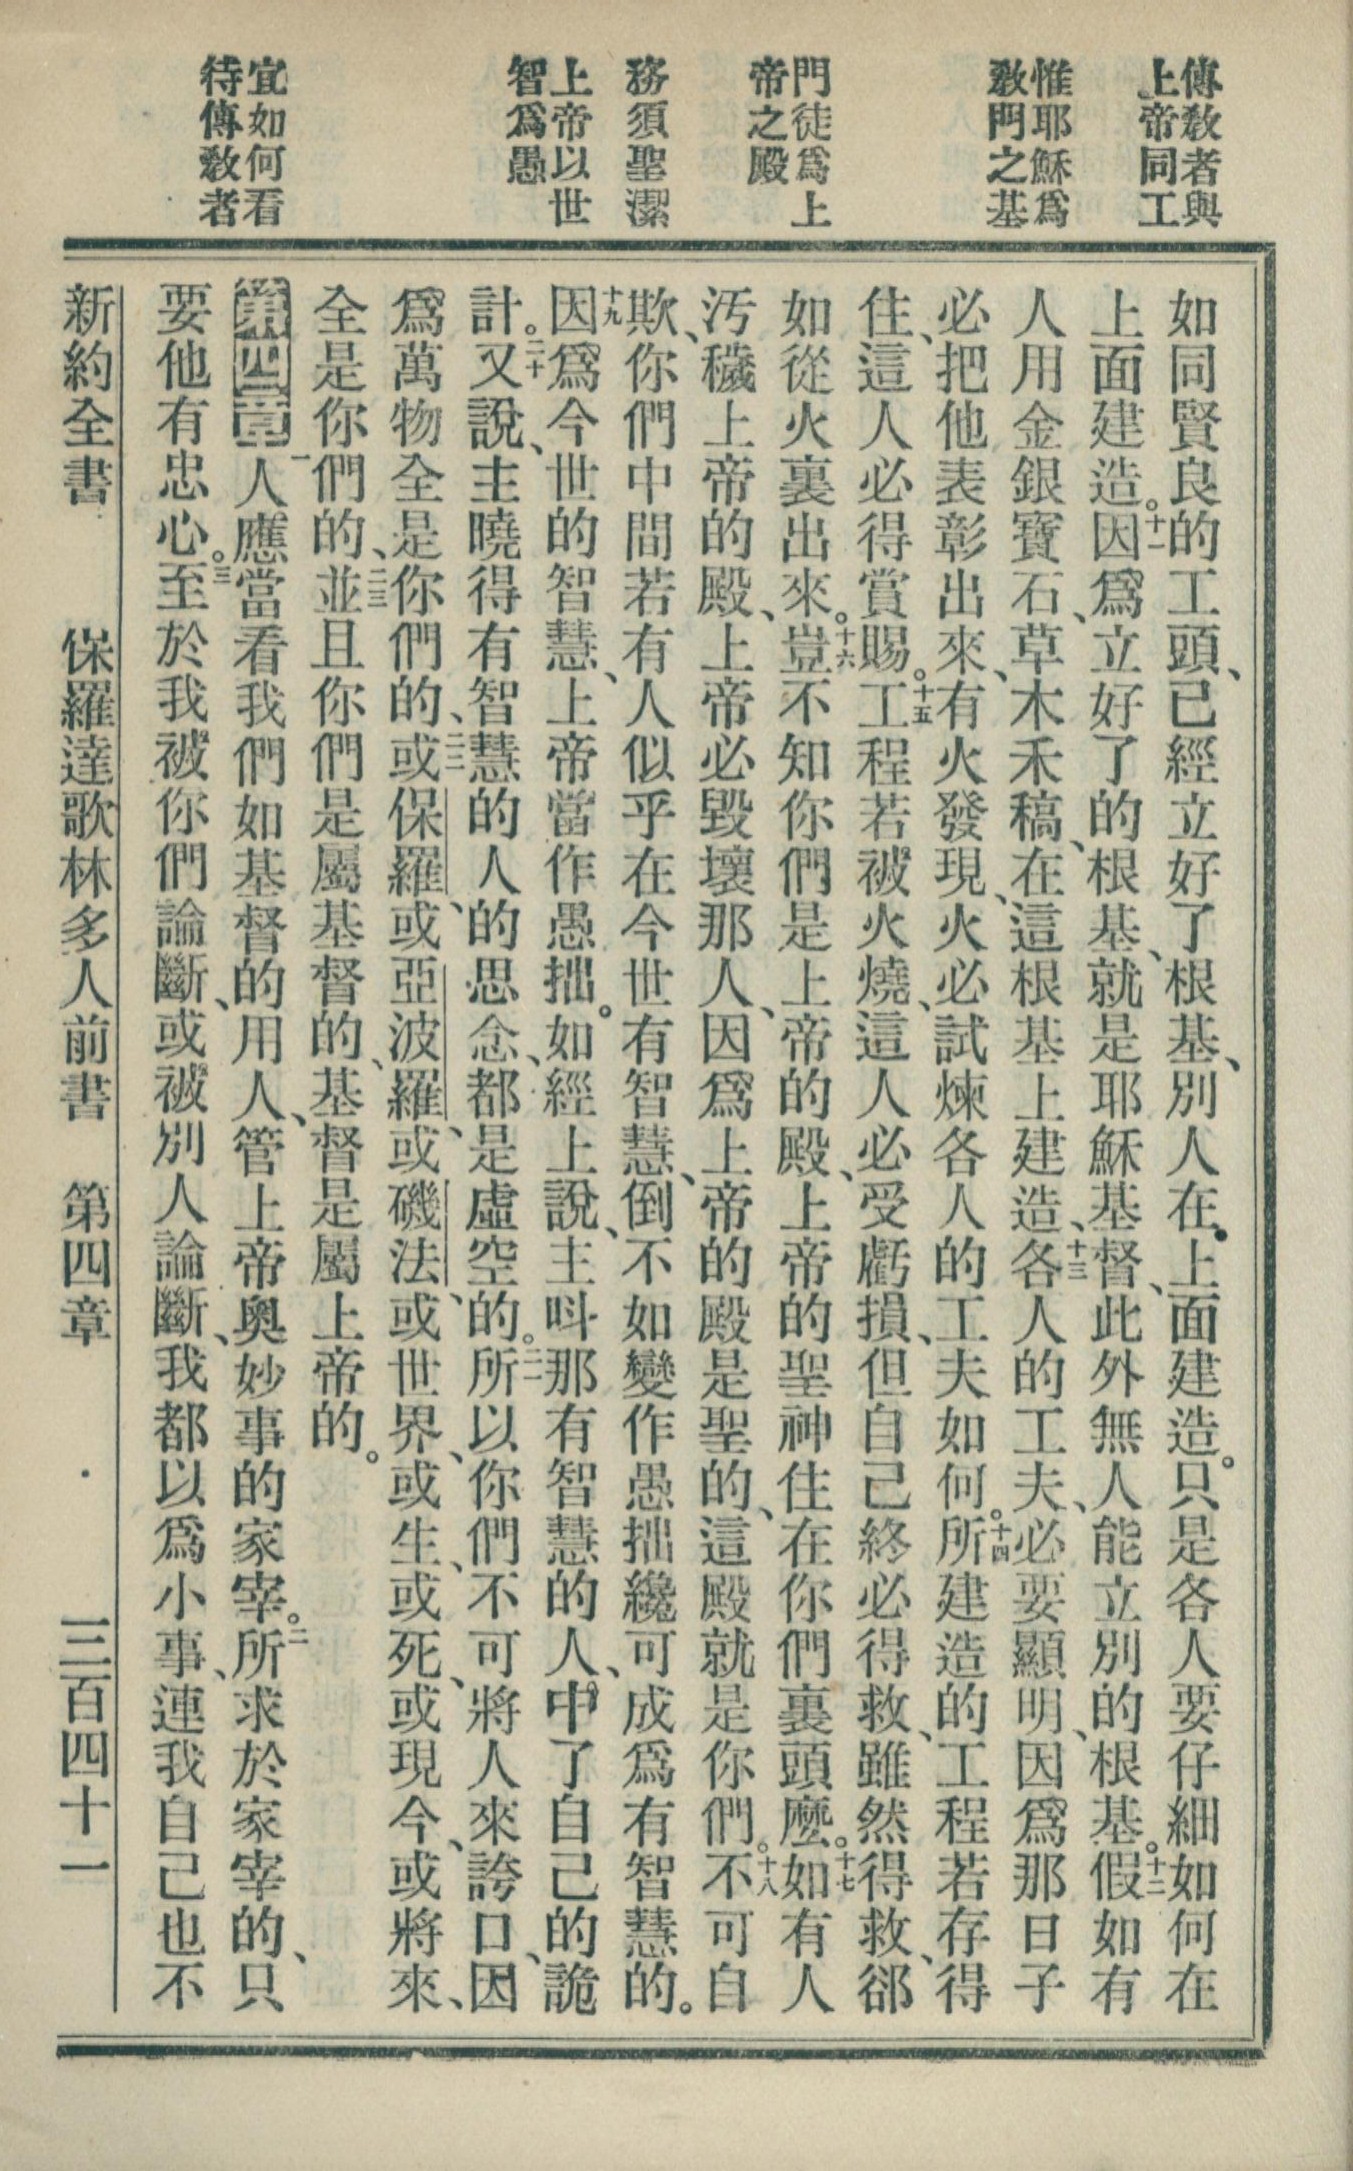 傳教者與
上帝同工
惟耶穌爲
教門之基
門徒爲上
帝之殿
務須聖潔
上帝以世
智爲愚
宜如何看
待傳教者
如同賢良的工頭、已經立好了根基、別人在上面建造。只是各人要仔細如何在
上面建造。十一因爲立好了的根基、就是耶穌基督、此外無人能立別的根基。十二假如有
人用金銀寶石、草木禾稿、在這根基上建造、十三各人的工夫、必要顯明、因爲那日子
必把他表彰出來、有火發現、火必試煉各人的工夫如何。十四所建造的工程若存得
住、這人必得賞賜。十五工程若被火燒、這人必受虧損、但自己終必得救、雖然得救、郤
如從火裏出來。十六豈不知你們是上帝的殿、上帝的聖神住在你們裏頭麽。十七如有人
汚穢上帝的殿、上帝必毀壞那人、因爲上帝的殿是聖的、這殿就是你們。十八不可自
欺、你們中間若有人似乎在今世有智慧、倒不如變作愚拙纔可成爲有智慧的。
十九因爲今世的智慧、上帝當作愚拙。如經上說、主呌那有智慧的人、中了自己的詭
計。二十又說、主曉得有智慧的人的思念、都是虛空的。二一所以你們不可將人來誇口、因
爲萬物全是你們的、二二或保羅、或亞波羅、或磯法、或世界、或生、或死、或現今、或將來、
全是你們的、二三並且你們是屬基督的、基督是屬上帝的。
第四章一人應當看我們如基督的用人、管上帝奧妙事的家宰。二所求於家宰的、只
要他有忠心。三至於我被你們論斷、或被別人論斷、我都以爲小事、連我自己也不
新約全書 保羅達歌林多人前書 第四章 三百四十一